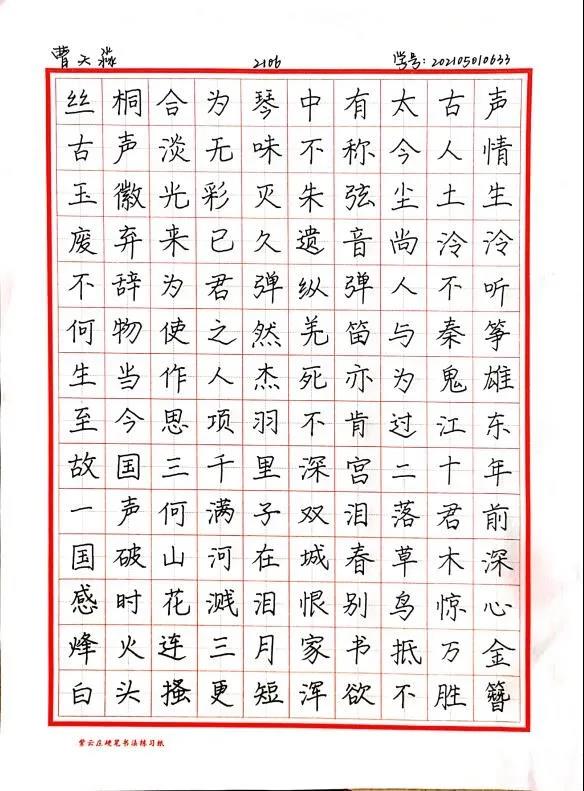 曹天淼 2106 学号:202105010633
丝桐合为琴中有太古声
古声淡无味不称今人情
玉徽光彩灭朱弦尘土生
废弃来已久遗音尚泠泠
不辞为君弹纵弹人不听
何物使之然羌笛与秦筝
生当作人杰死亦为鬼雄
至今思项羽不肯过江东
故国三千里深宫二十年
一声何满子双泪落君前
国破山河在城春草木深
感时花溅泪恨别鸟惊心
烽火连三月家书抵万金
白头搔更短浑欲不胜簪
紫云庄硬笔书法练习纸